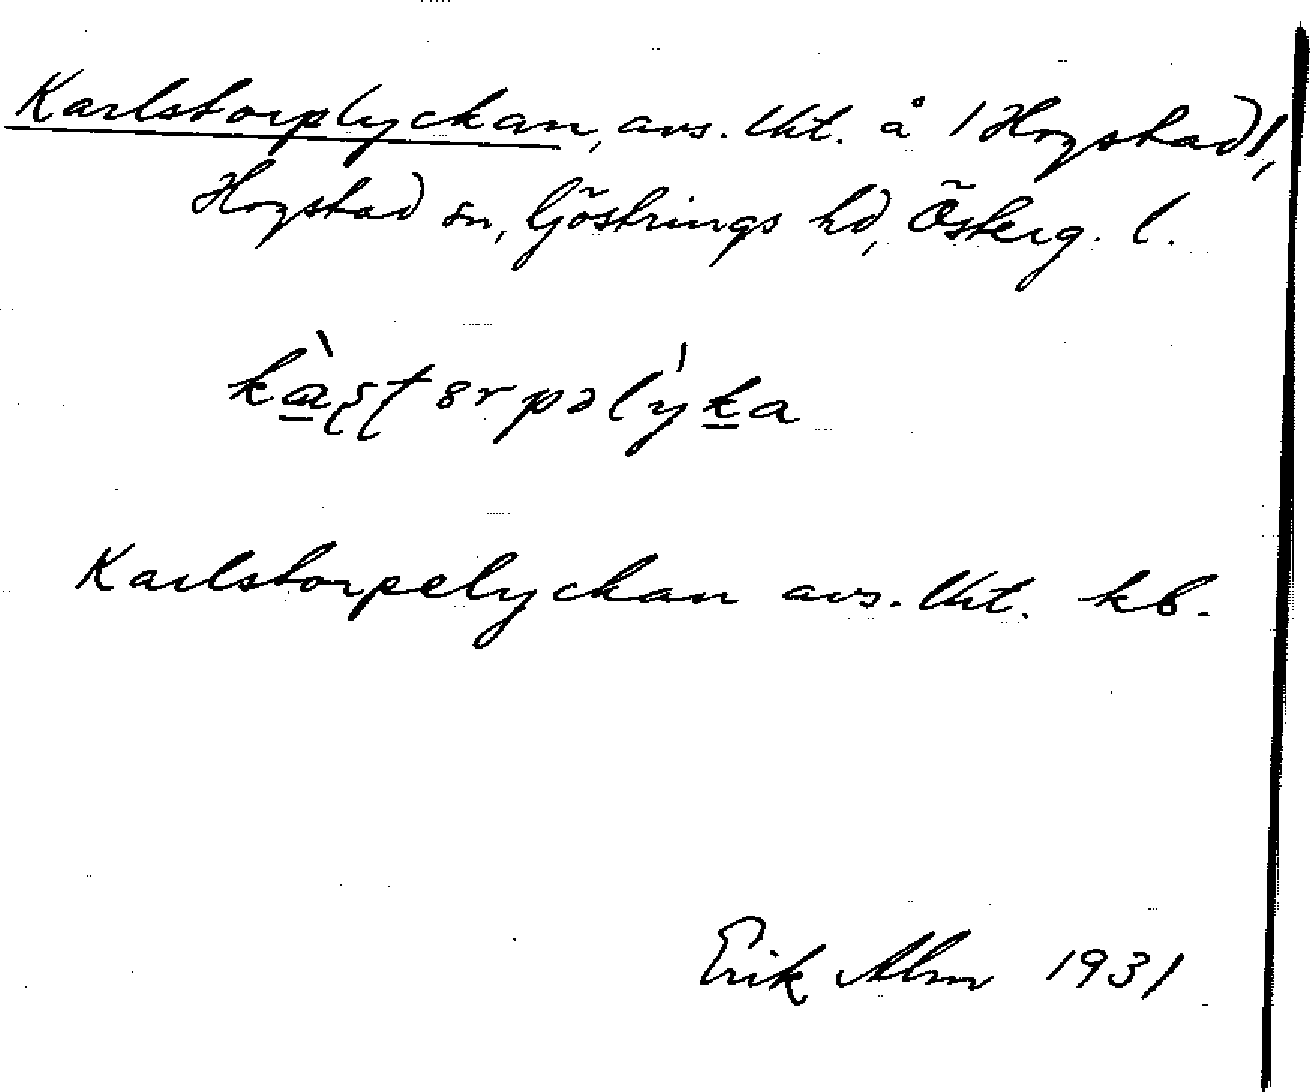 Karlstorplyckan, avs. lht. å /Hogstad/,
Hogstad sn, Göstrings hd, Österg. l.
kàʂʈɵrpəlýka
Karlstorpelyckan avs. lht. kb.
Erik Alm 1931